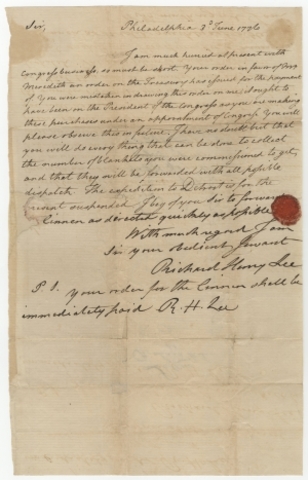 Sir, Philadelphia 3d June 1776
I am much hurried at present with
Congress business, so must be short. Your order in favor of
Meredith an order on the Treasury has issued for the payment
of. You were mistaken in drawing this order on me, it ought to
have been on the President of the Congress as you are making
these purchases under an appointment of Congress. You will
please observe this in future. I have no doubt but that
you will do every thing that can be done to collect
the number of blankets you were commissioned to get,
and that they will be forwarded with all possible
dispatch. The expedition to Detroit is for the
suspended. I beg of you Sir to forward
Linnen as directed quickly as possible
With much regard I am
Sir your obedient servant
Richard Henry Lee
P.S. your order for the Linnen shall be
immediately paid R. H. Lee